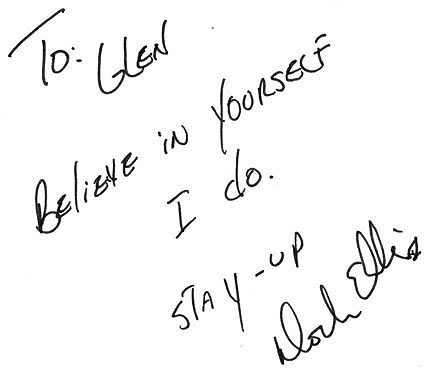 To: GLEN
BELIEVE iN YOURSELF
I do.
STAY-UP
Dock Ellis